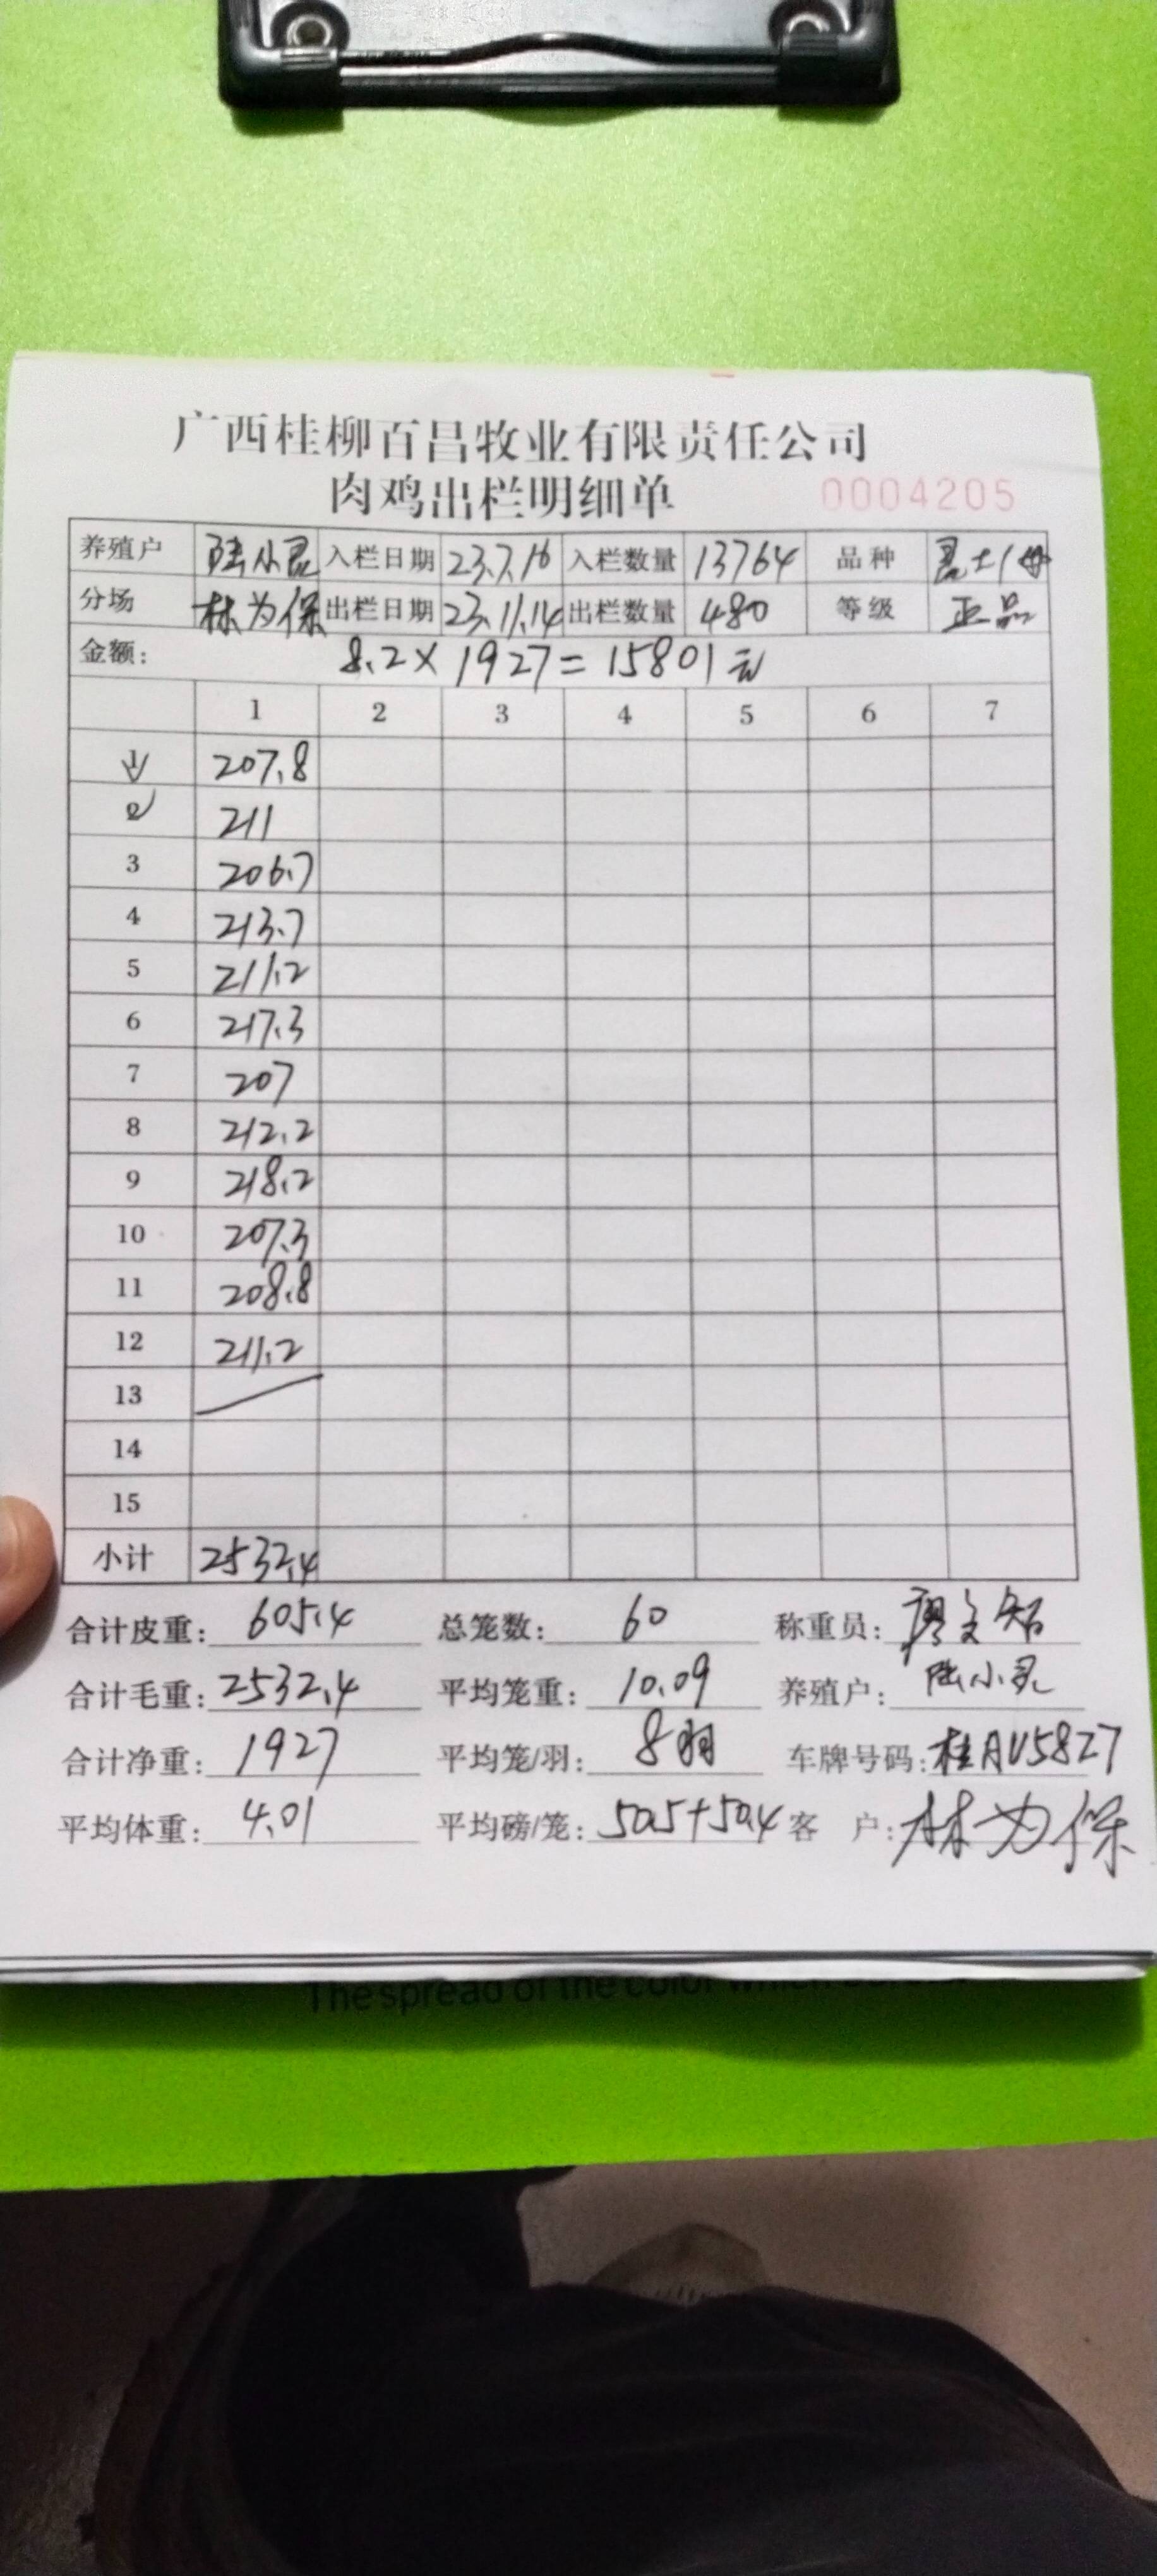 广西桂柳百昌牧业有限责任公司
肉鸡出栏明细单 0004205
养殖户 陆小昆 入栏日期 23.7.16 入栏数量 13764 品种 土1母
分场 林为保 出栏日期 23.11.14 出栏数量 480 等级 正品
金额: 8.2×1927=15801元
1 2 3 4 5 6 7
1 207.8
2 211
3 206.7
4 213.7
5 211.2
6 217.3
7 207
8 212.2
9 218.2
10 207.3
11 208.8
12 211.2
13
14
15
小计 2532.4
合计皮重: 605.4 总笼数: 60 称重员: 廖文知
合计毛重: 2532.4 平均笼重: 10.09 养殖户: 陆小
合计净重: 1927 平均笼/羽: 8羽 车牌号码: 桂AV5827
平均体重: 4.01 平均磅/笼: 50.5+50.4 客 户: 林为保
The spread of the color